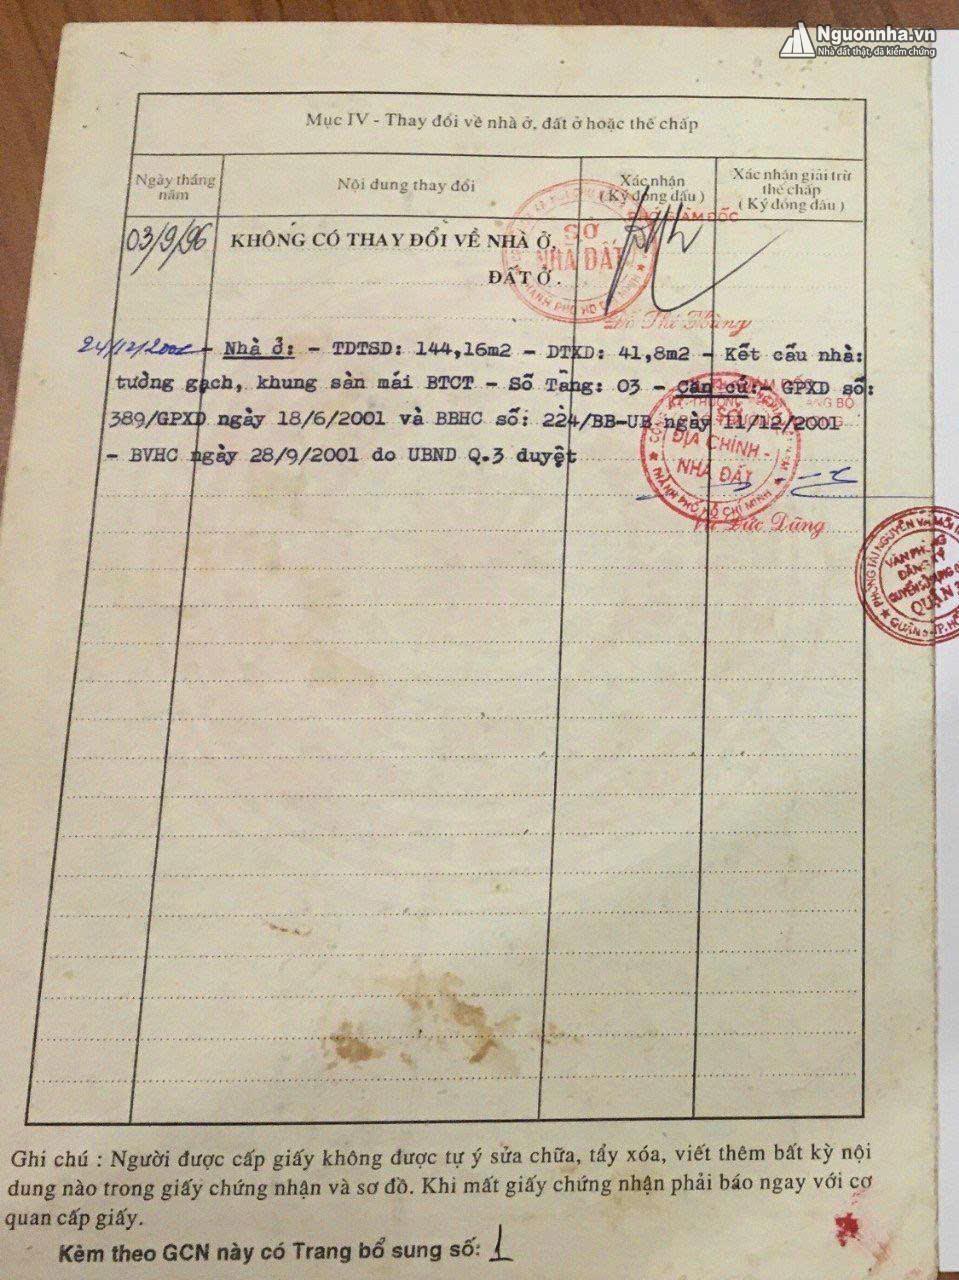 Nguonnha.vn
Nhà đất thật, đã kiểm chứng
Mục IV - Thay đổi về nhà ở, đất ở hoặc thế chấp
Ngày tháng năm
Nội dung thay đổi
Xác nhận
( Ký đóng dấu )
Xác nhận giải trừ
thế chấp
( Ký đóng dấu )
PHÓ GIÁM ĐỐC
03/9/96
KHÔNG CÓ THAY ĐỔI VỀ NHÀ Ở,
ĐẤT Ở .
SỞ
NHÀ ĐẤT
THÀNH PHỐ HỒ CHÍ MINH
Đỗ Thị Hồng
24/12/200
- Nhà ở: - TDTSD: 144,16m2 - DTXD: 41,8m2 - Kết cấu nhà:
tường gạch, khung sàn mái BTCT - Số Tầng: 03 - Căn cứ:- GPXD số:
389/GPXD ngày 18/6/2001 và BBHC số: 224/BB-UB ngày 11/12/2001
- BVHC ngày 28/9/2001 do UBND Q.3 duyệt
SỞ
ĐỊA CHÍNH -
NHÀ ĐẤT
THÀNH PHỐ HỒ CHÍ MINH
Vũ Đức Dũng
PHÒNG TÀI NGUYÊN VÀ MÔI
VĂN PHÒNG
ĐĂNG KÝ
QUYỀN SỬ DỤNG
QUẬN 3
Ghi chú : Người được cấp giấy không được tự ý sửa chữa, tẩy xóa, viết thêm bất kỳ nội
dung nào trong giấy chứng nhận và sơ đồ. Khi mất giấy chứng nhận phải báo ngay với cơ
quan cấp giấy.
Kèm theo GCN này có Trang bổ sung số: 1